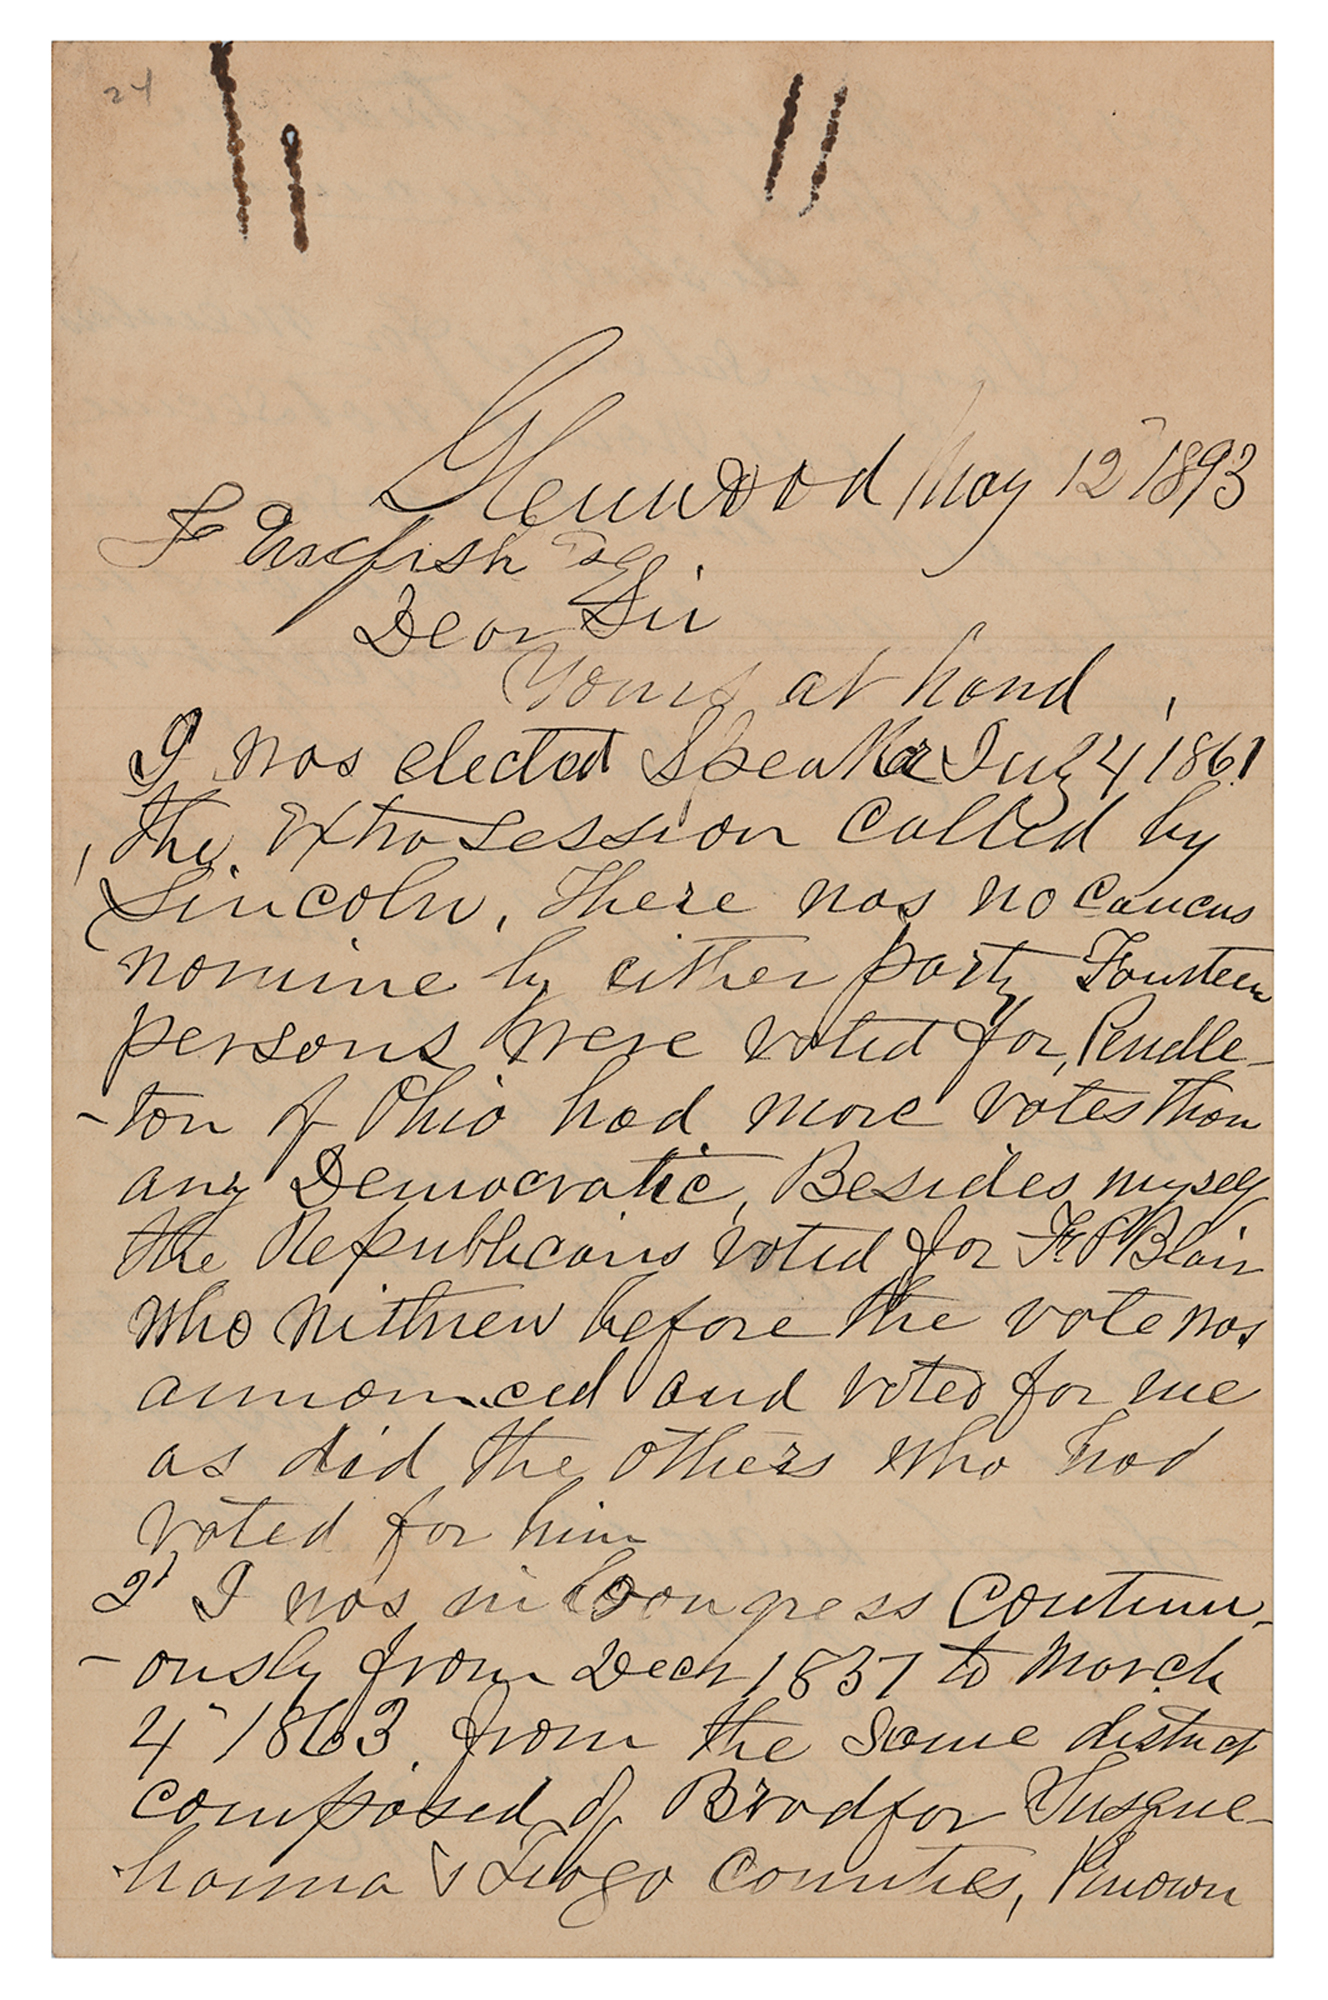 24
Glenwood May 12" 1893
Esq.
Dear Sir
Yours at hand,
I was elected Speaker July 4 1861
the Extra session called by
Lincoln, There was no caucus
nomine by either party Fourteen
persons were voted for, Pendle-
-ton of Ohio had more votes than
any Democratic, Besides myself
the Republicans voted for F. P Blair
who withrew before the vote was
announced and voted for me
as did the others who had
voted for him
2d I was in Congress Continu-
-ously from Decr 1857 to March
4" 1863. from the same district
composed of Bradfor Susque-
hanna & Tioga Counties, Known